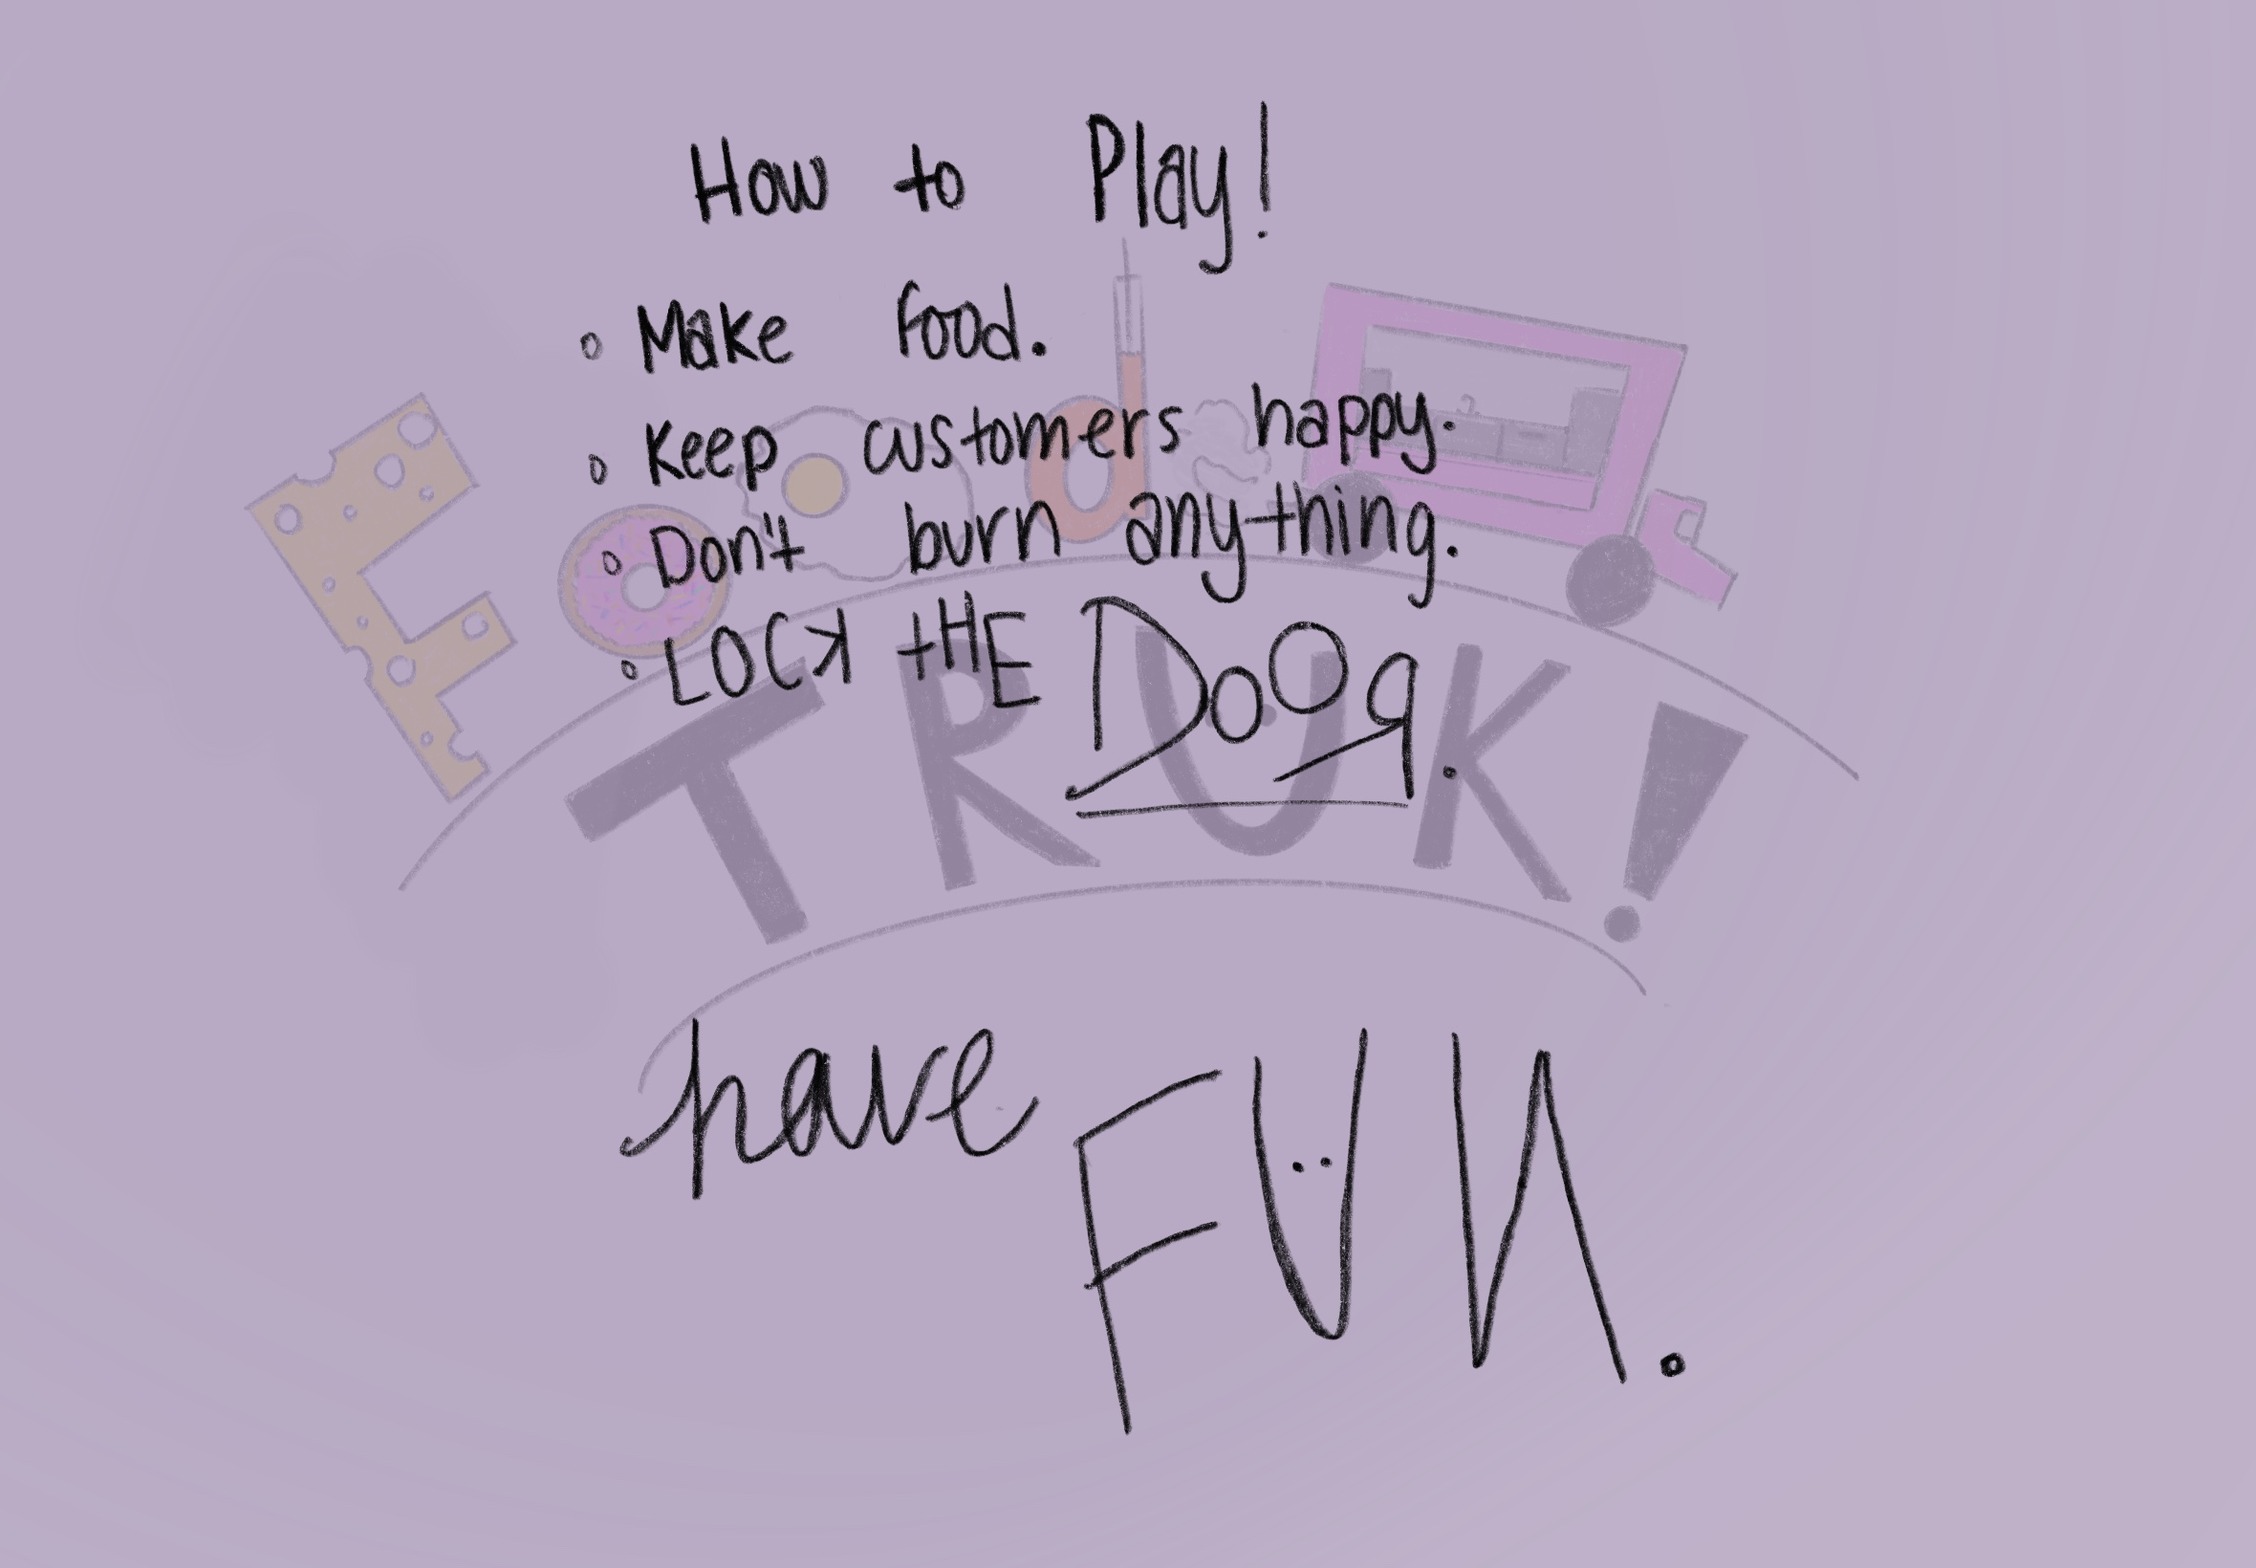 How to Play!
Make food.
Keep customers happy.
Don't burn anything.
LOCK tHE DoOR.
have FUN.
Food
TRUK!